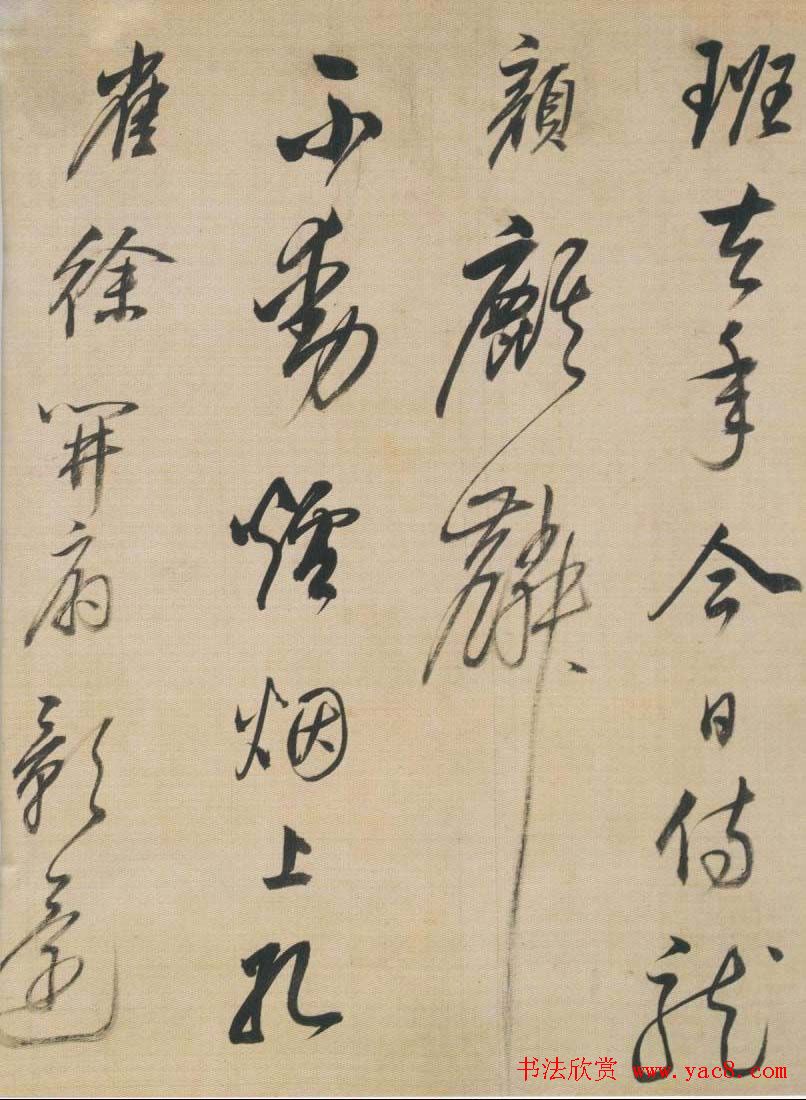 班去年今日侍龍
顏麒麟
不動爐烟上孔
雀徐開扇影還
书法欣赏 www.yac8.com